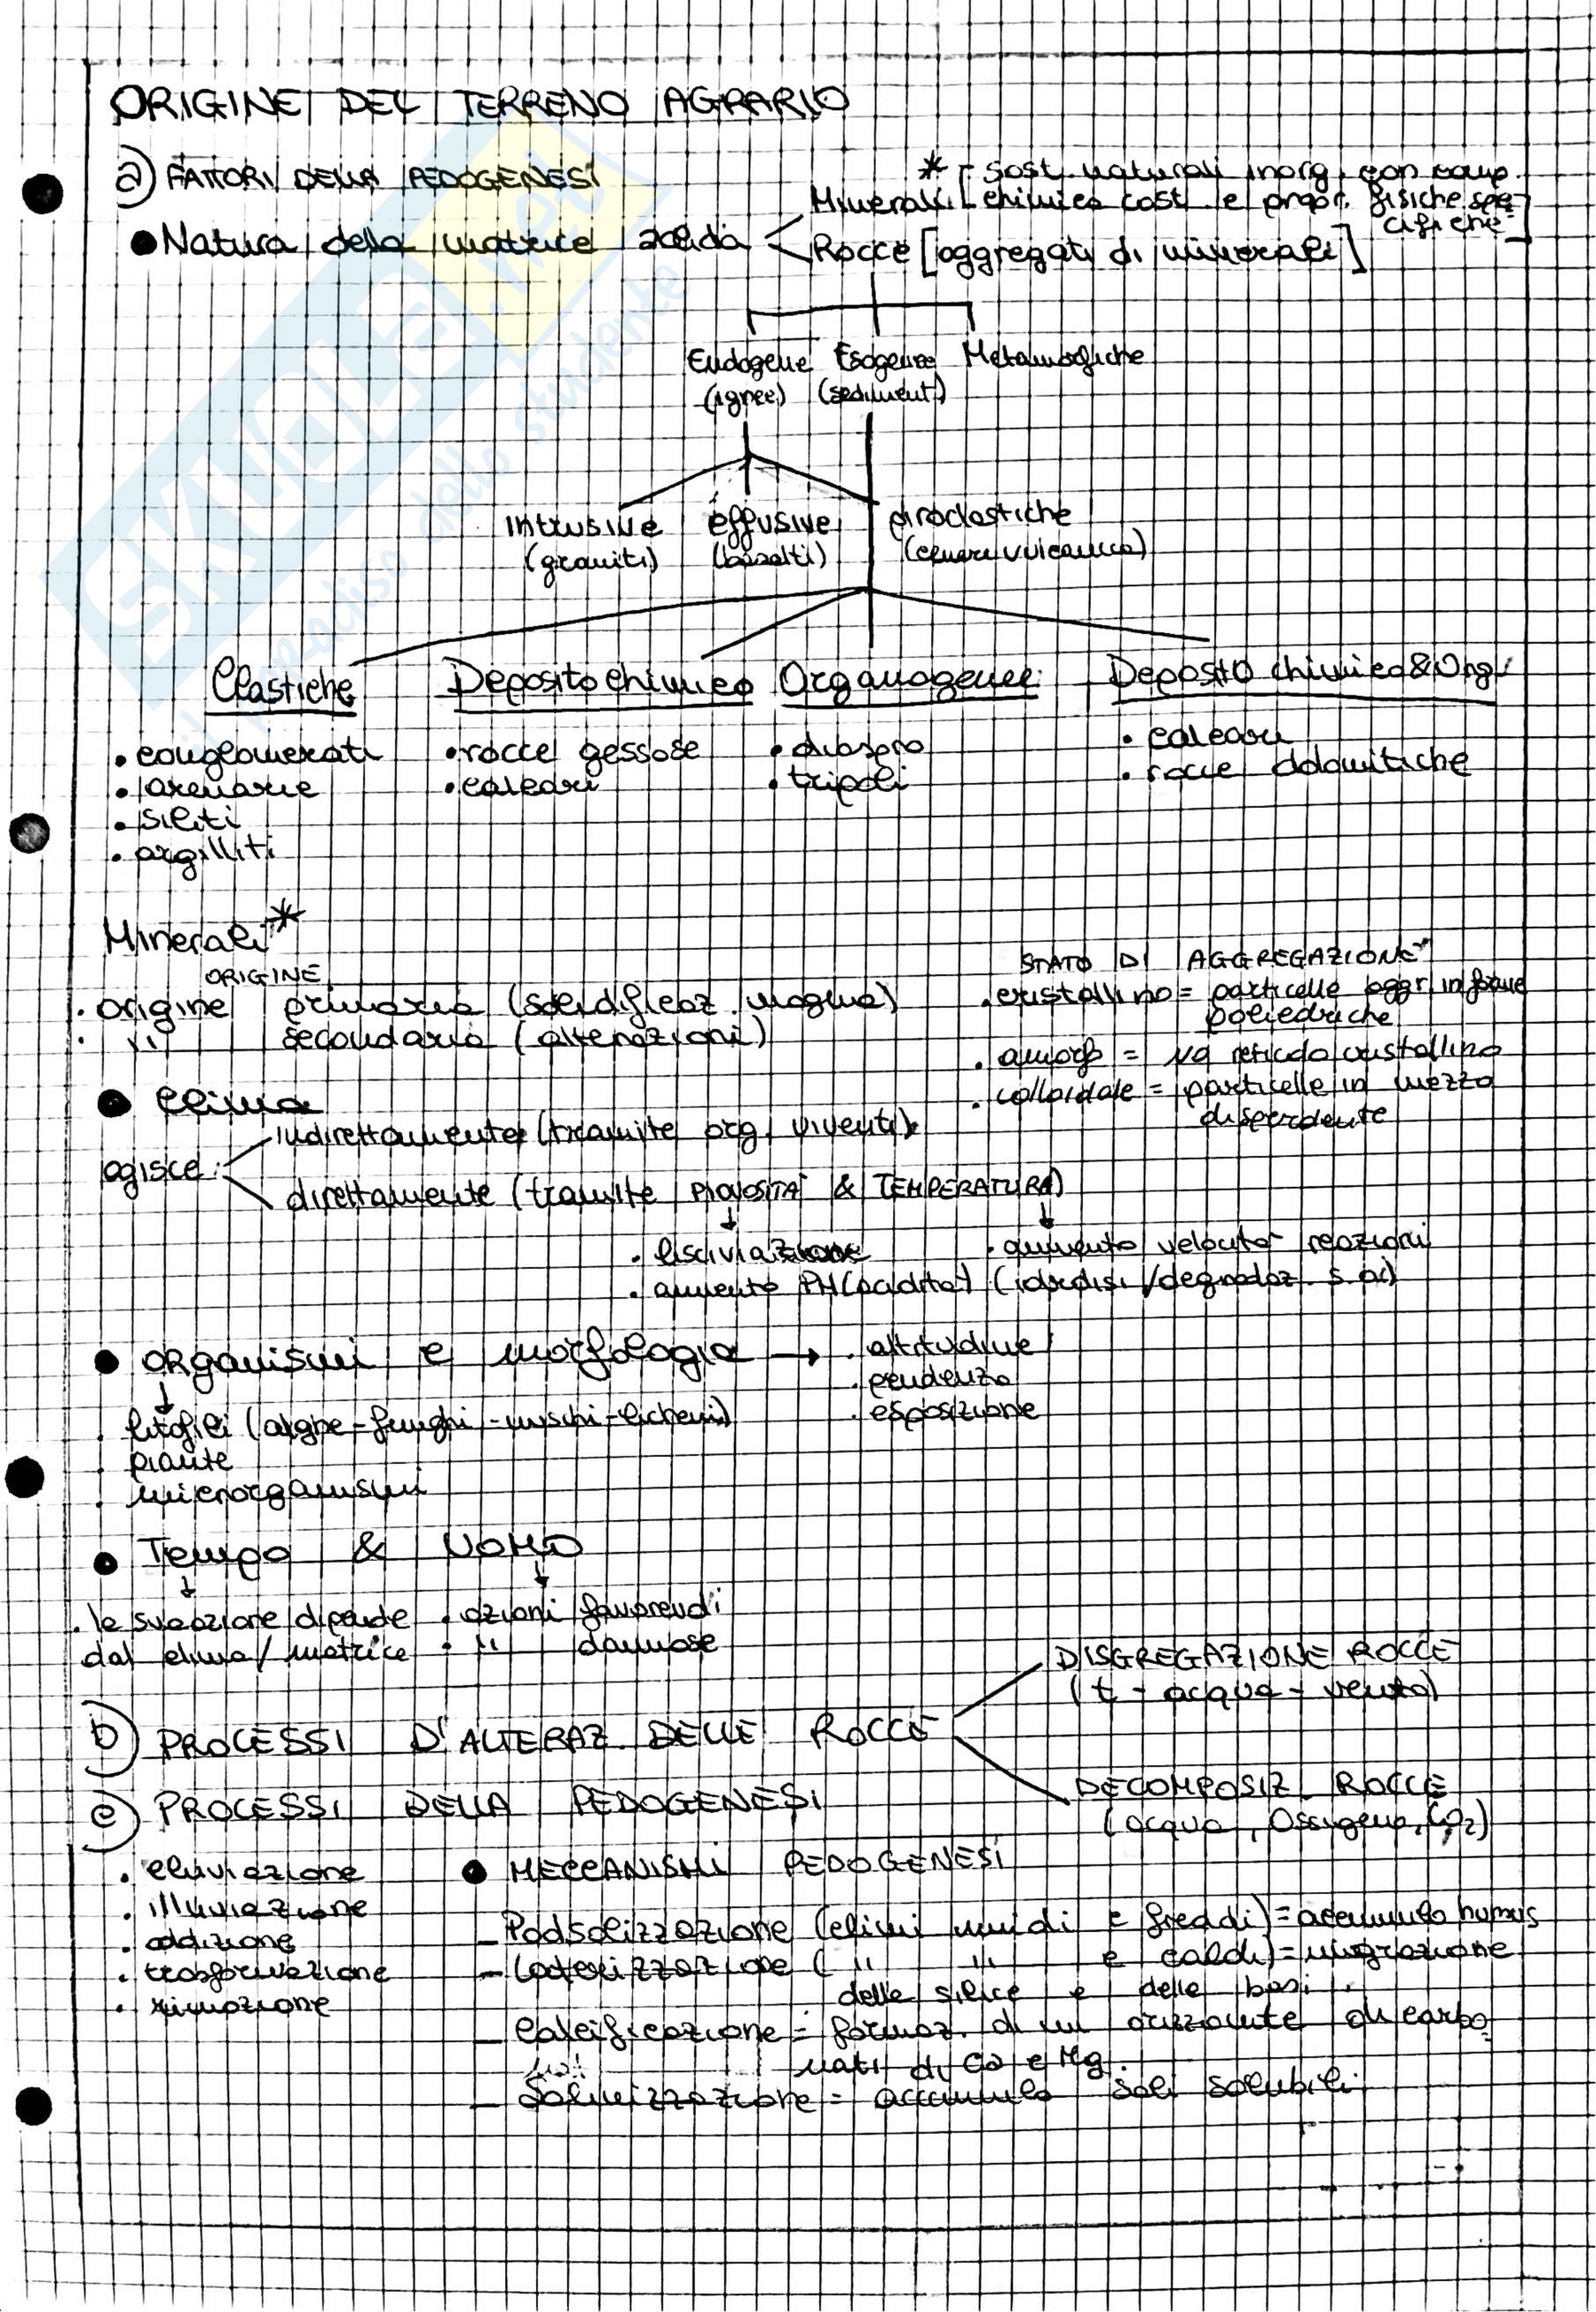 ORIGINE DEL TERRENO AGRARIO
a) FATTORI DELLA PEDOGENESI
* - Sost. naturali inorg. con comp.
Minerali [chimica cost. e propr. fisiche spe-
cifiche]
● Natura della matrice solida
Rocce [aggregati di minerali]
Endogene Esogene Metamorfiche
(ignee) (sediment.)
intrusive effusive piroclastiche
(graniti) (basalti) (cenere vulcanica)
Clastiche Deposito chimico Organogene Deposito chimico & Org.
• conglomerati • rocce gessose • diaspro • calcari
• arenarie • calcari • tripoli • rocce dolomitiche
• siltiti
• argilliti
Minerali *
ORIGINE STATO DI AGGREGAZIONE
• origine primaria (solidificaz. magma) • cristallino = particelle aggr. in forme
poliedriche
• " secondaria (alterazioni)
• amorfo = no reticolo cristallino
• colloidale = particelle in mezzo
disperdente
● Clima
indirettamente (tramite org. viventi)
agisce:
direttamente (tramite PIOVOSITÀ & TEMPERATURA)
• lisciviazione • aumento velocità reazioni
• aumento PH (acidità) (idrolisi/degradaz. s.o.)
● organismi e morfologia → • altitudine
• pendenza
• esposizione
• litofili (alghe-funghi-muschi-licheni)
• piante
• microrganismi
● Tempo & UOMO
• la sua azione dipende • azioni favorevoli
dal clima/matrice • " dannose
DISGREGAZIONE ROCCE
(t - acqua - vento)
b) PROCESSI D'ALTERAZ. DELLE ROCCE
DECOMPOSIZ. ROCCE
(acqua, Ossigeno, CO2)
c) PROCESSI DELLA PEDOGENESI
• eluviazione ● MECCANISMI PEDOGENESI
• illuviazione
• addizione
• trasformazione
• rimozione
- Podsolizzazione (climi umidi e freddi) = accumulo humus
- Laterizzazione ( " " e caldi) = migrazione
della silice e delle basi.
- Calcificazione = formaz. di un orizzonte di carbo-
nati di Ca e Mg.
- Salinizzazione = accumulo sali solubili.
SKUOLA.net
il paradiso dello studente